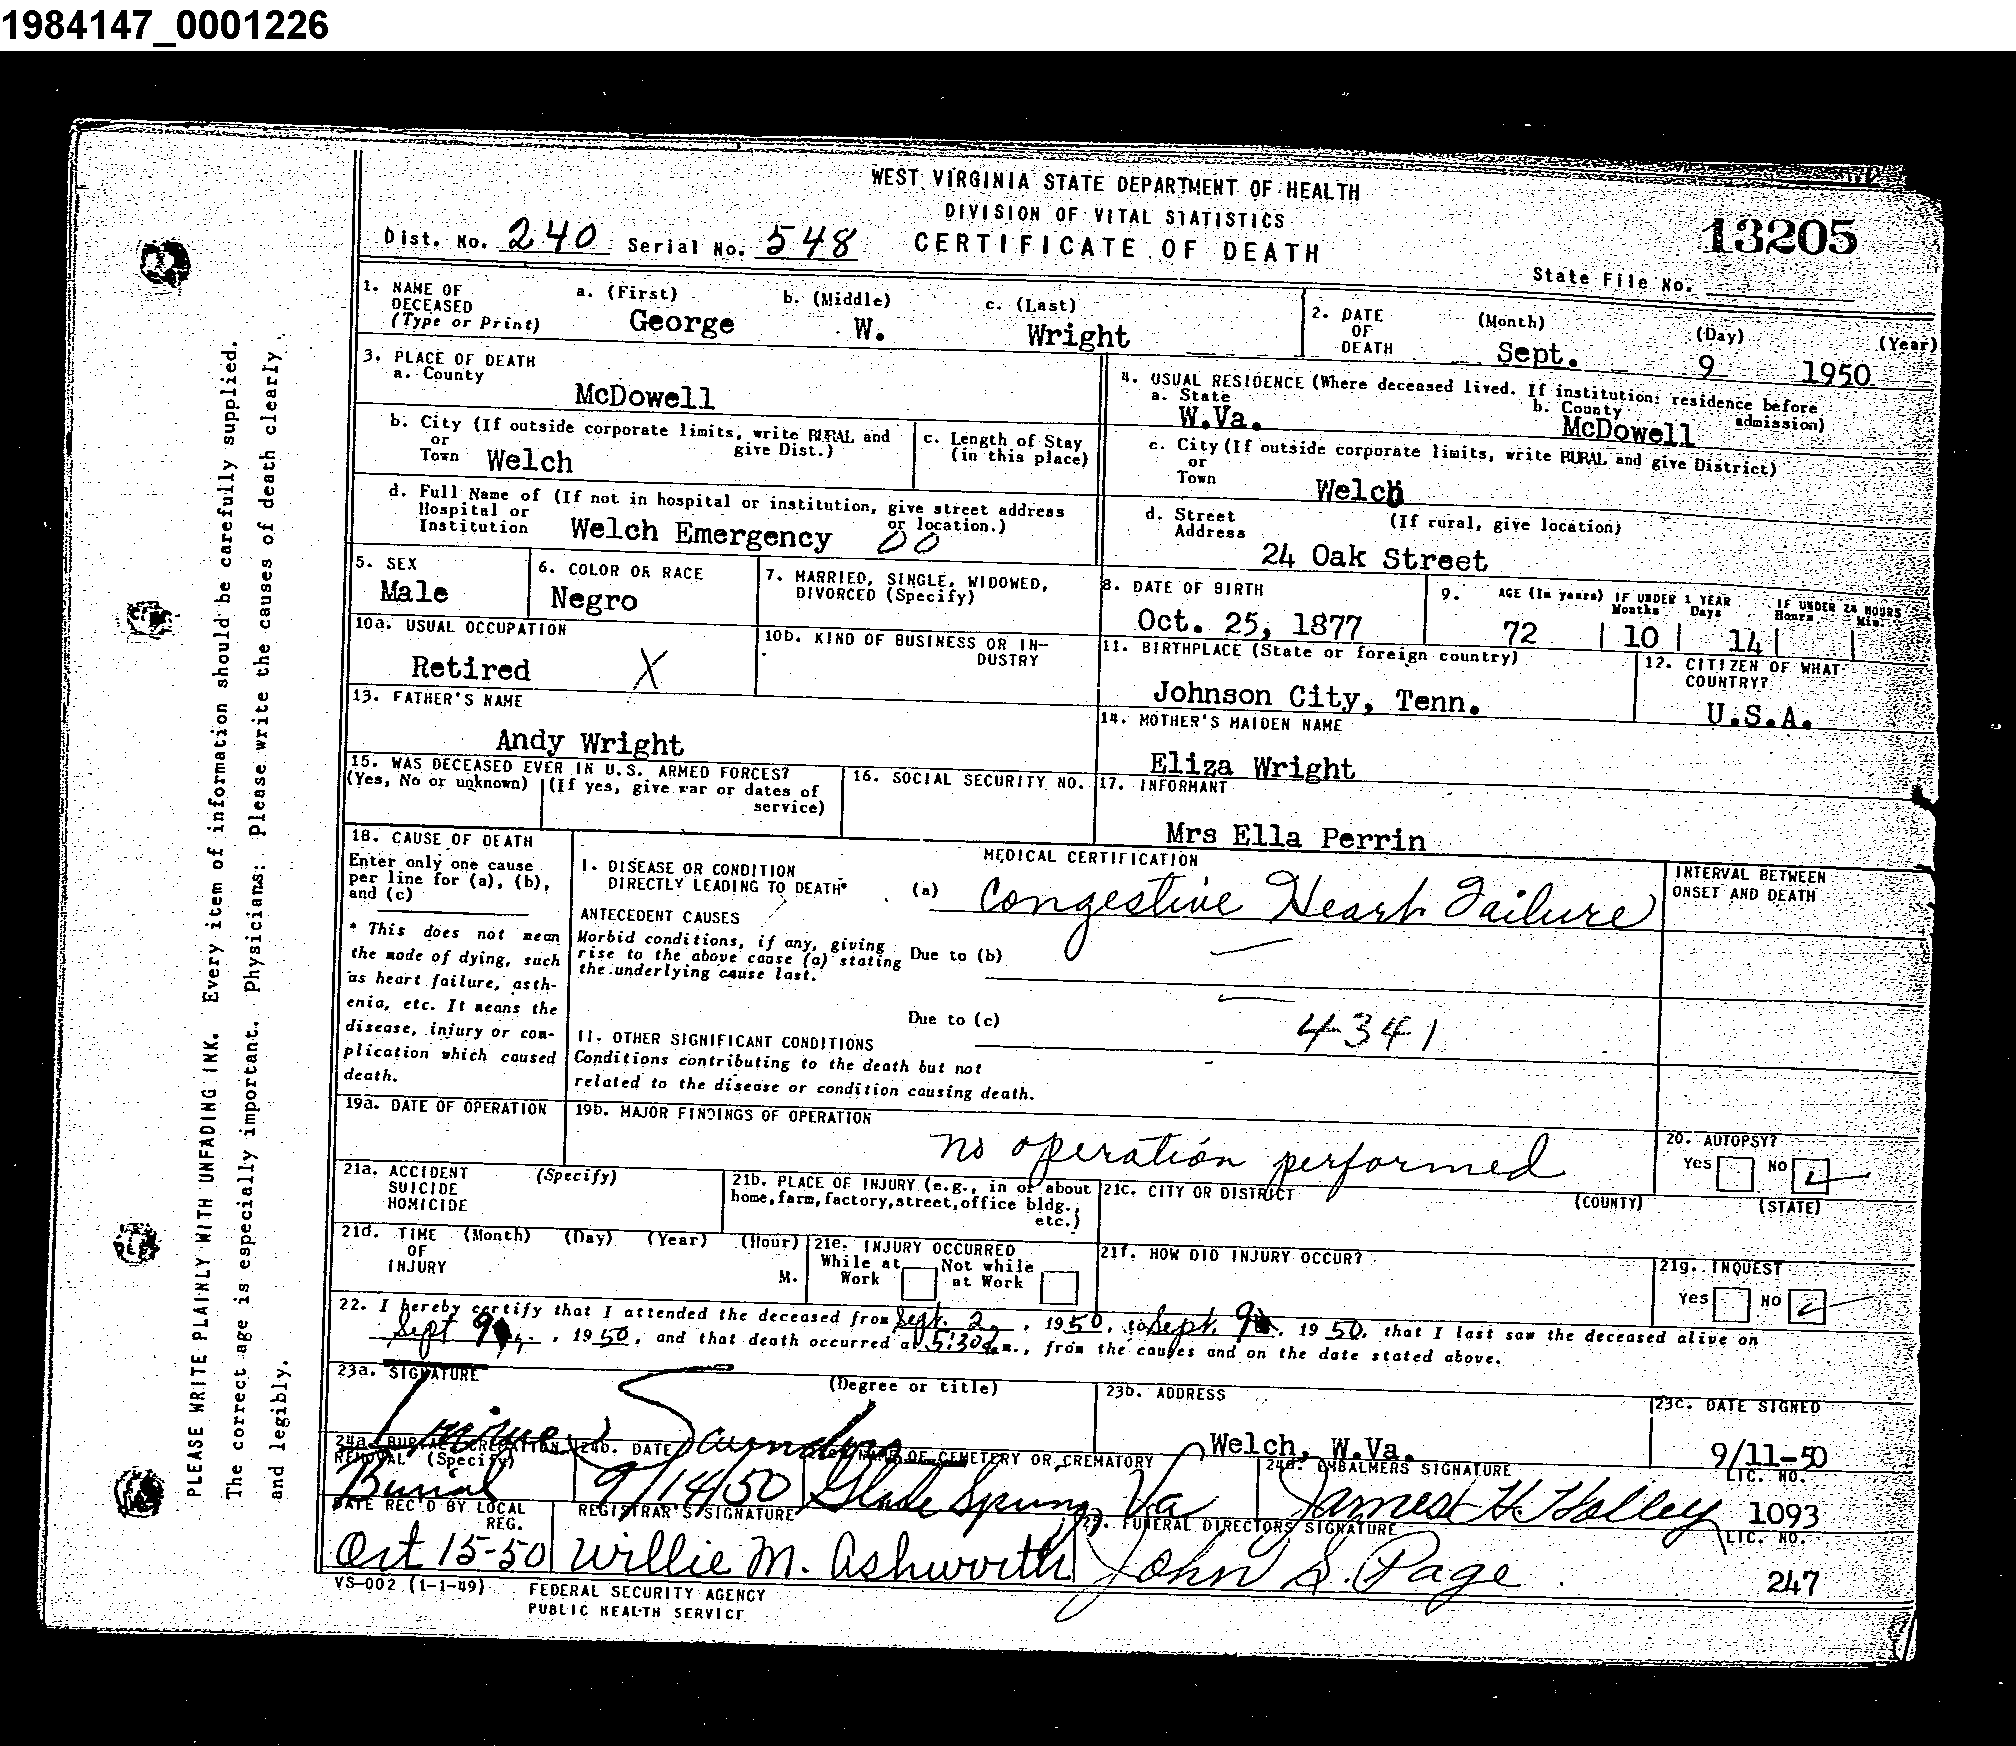 1984147_0001226
WEST VIRGINIA STATE DEPARTMENT OF HEALTH
DIVISION OF VITAL STATISTICS
13205
Dist. No. 240 Serial No. 548 CERTIFICATE OF DEATH
State File No.
1. NAME OF DECEASED (Type or Print) a. (First) b. (Middle) c. (Last)
George W. Wright
2. DATE OF DEATH (Month) (Day) (Year)
Sept. 9 1950
3. PLACE OF DEATH
a. County
McDowell
4. USUAL RESIDENCE (Where deceased lived. If institution: residence before admission)
a. State b. County
W.Va. McDowell
b. City (If outside corporate limits, write RURAL and give Dist.)
or Town Welch
c. Length of Stay (in this place)
c. City (If outside corporate limits, write RURAL and give District)
or Town
Welch
d. Full Name of (If not in hospital or institution, give street address or location.)
Hospital or Institution Welch Emergency 00
d. Street Address (If rural, give location)
24 Oak Street
5. SEX
Male
6. COLOR OR RACE
Negro
7. MARRIED, SINGLE, WIDOWED, DIVORCED (Specify)
8. DATE OF BIRTH
Oct. 25, 1877
9. AGE (In years) IF UNDER 1 YEAR Months Days IF UNDER 24 HOURS Hours Min.
72 10 14
10a. USUAL OCCUPATION
Retired X
10b. KIND OF BUSINESS OR INDUSTRY
11. BIRTHPLACE (State or foreign country)
Johnson City, Tenn.
12. CITIZEN OF WHAT COUNTRY?
U.S.A.
13. FATHER'S NAME
Andy Wright
14. MOTHER'S MAIDEN NAME
Eliza Wright
15. WAS DECEASED EVER IN U.S. ARMED FORCES?
(Yes, No or unknown) (If yes, give war or dates of service)
16. SOCIAL SECURITY NO.
17. INFORMANT
Mrs Ella Perrin
18. CAUSE OF DEATH
Enter only one cause per line for (a), (b), and (c)
* This does not mean the mode of dying, such as heart failure, asthenia, etc. It means the disease, injury or complication which caused death.
MEDICAL CERTIFICATION
I. DISEASE OR CONDITION DIRECTLY LEADING TO DEATH* (a) Congestive Heart Failure
INTERVAL BETWEEN ONSET AND DEATH
ANTECEDENT CAUSES
Morbid conditions, if any, giving rise to the above cause (a) stating the underlying cause last.
Due to (b)
Due to (c)
4341
II. OTHER SIGNIFICANT CONDITIONS
Conditions contributing to the death but not related to the disease or condition causing death.
19a. DATE OF OPERATION
19b. MAJOR FINDINGS OF OPERATION
no operation performed
20. AUTOPSY?
Yes No
21a. ACCIDENT SUICIDE HOMICIDE (Specify)
21b. PLACE OF INJURY (e.g., in or about home, farm, factory, street, office bldg., etc.)
21c. CITY OR DISTRICT (COUNTY) (STATE)
21d. TIME OF INJURY (Month) (Day) (Year) (Hour) M.
21e. INJURY OCCURRED
While at Work Not while at Work
21f. HOW DID INJURY OCCUR?
21g. INQUEST
Yes No
22. I hereby certify that I attended the deceased from Sept. 2, 1950, to Sept. 9, 1950, that I last saw the deceased alive on
Sept 9, 1950, and that death occurred at 5:30 m., from the causes and on the date stated above.
23a. SIGNATURE (Degree or title)
Saunders
23b. ADDRESS
Welch, W.Va.
23c. DATE SIGNED
9/11-50
24a. BURIAL, CREMATION, REMOVAL (Specify)
Burial
24b. DATE
9/14/50
NAME OF CEMETERY OR CREMATORY
Glade Spring, Va
24d. EMBALMERS SIGNATURE LIC. NO.
James H Holley 1093
DATE REC'D BY LOCAL REG.
Oct 15-50
REGISTRAR'S SIGNATURE
Willie M. Ashworth
FUNERAL DIRECTORS SIGNATURE LIC. NO.
John S. Page 247
VS-002 (1-1-49) FEDERAL SECURITY AGENCY
PUBLIC HEALTH SERVICE
PLEASE WRITE PLAINLY WITH UNFADING INK. Every item of information should be carefully supplied.
The correct age is especially important. Physicians: Please write the causes of death clearly
and legibly.